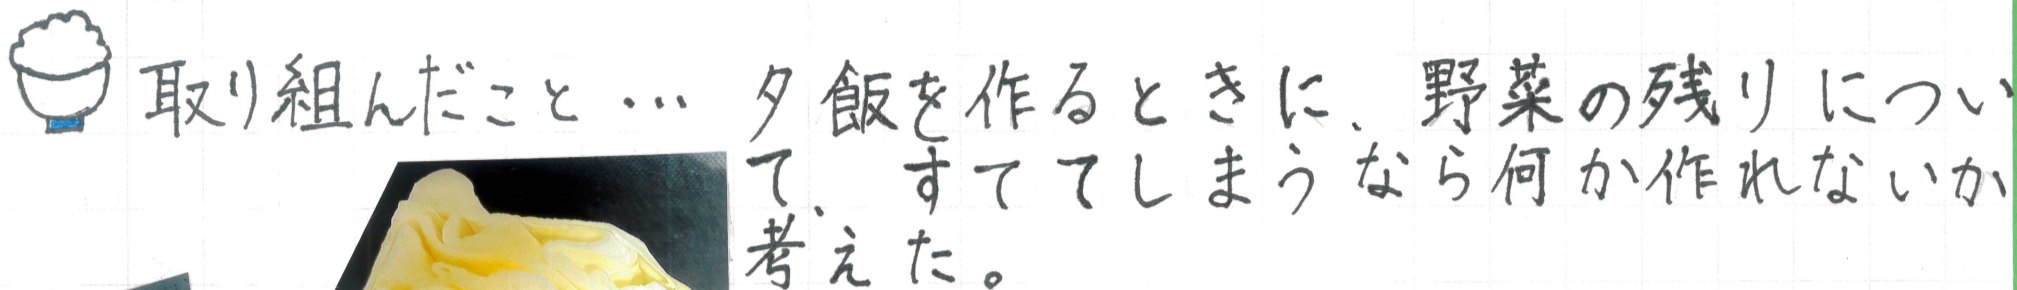 取り組んだこと… 夕飯を作るときに、野菜の残りについ
て、すててしまうなら何か作れないか
考えた。